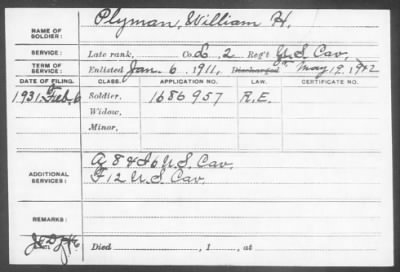 NAME OF SOLDIER: Plyman, William H.
SERVICE: Late rank, Co. L, 2 Reg't U.S. Cav.
TERM OF SERVICE: Enlisted Jan. 6, 1911, Discharged May 19,
DATE OF FILING. CLASS. APPLICATION NO. LAW. CERTIFICATE NO.
1931, Feb. 6 Soldier, 1686957 R.E.
Widow,
Minor,
ADDITIONAL SERVICES: A 8 & I 6 U.S. Cav.
F 12 U.S. Cav.
REMARKS:
Died , 1 , at